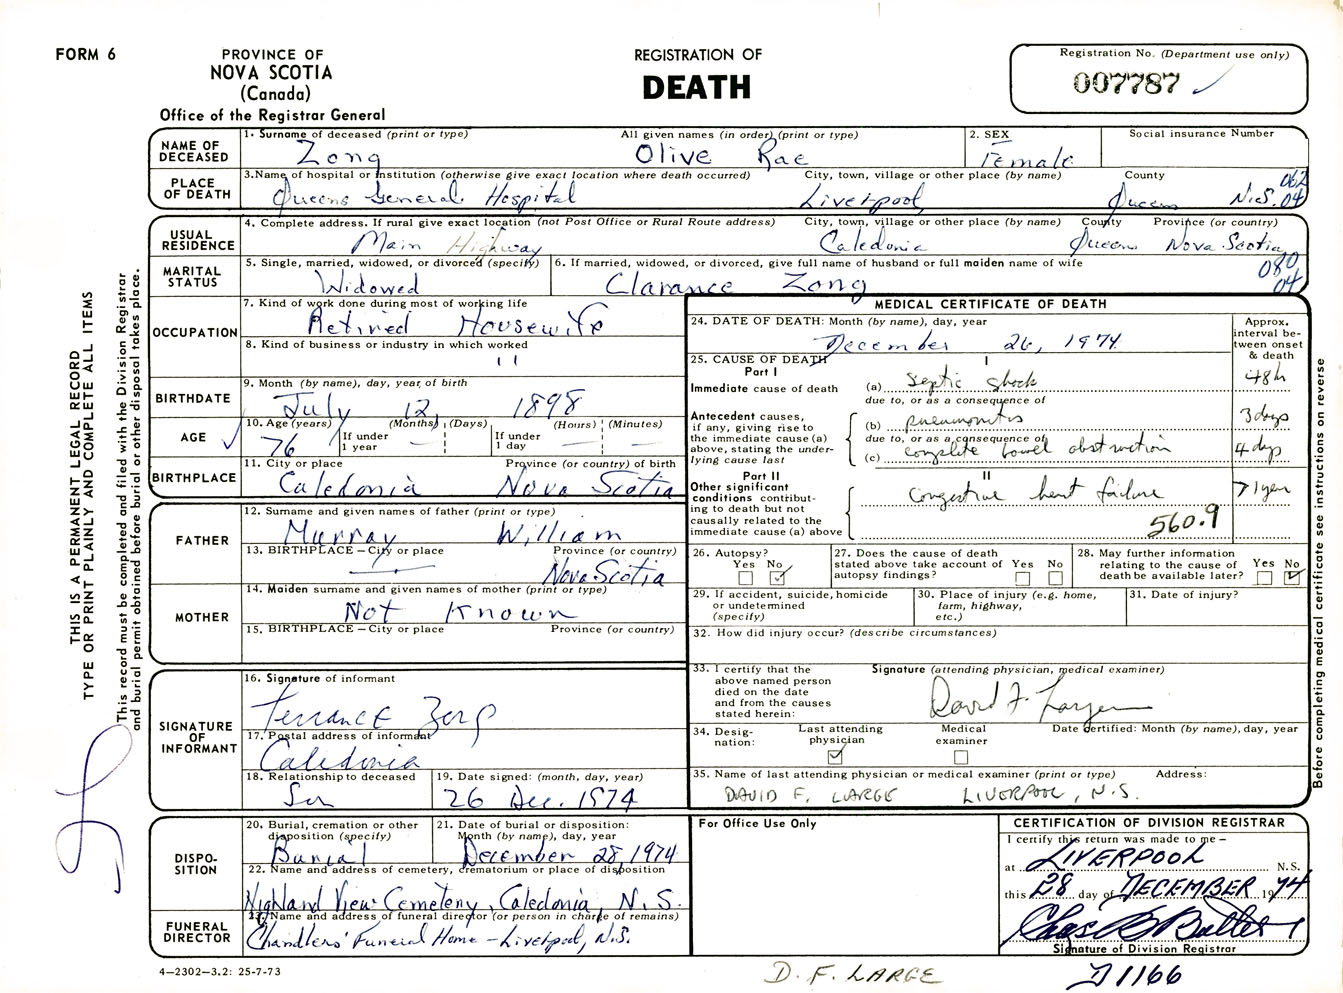 FORM 6
PROVINCE OF
NOVA SCOTIA
(Canada)
Office of the Registrar General
REGISTRATION OF
DEATH
Registration No. (Department use only)
007787
NAME OF DECEASED
1. Surname of deceased (print or type) All given names (in order) (print or type) 2. SEX Social insurance Number
Zong Olive Rae Female
PLACE OF DEATH
3. Name of hospital or institution (otherwise give exact location where death occurred) City, town, village or other place (by name) County
Queens General Hospital Liverpool, Queens N.S. 062 04
USUAL RESIDENCE
4. Complete address. If rural give exact location (not Post Office or Rural Route address) City, town, village or other place (by name) County Province (or country)
Main Highway Caledonia Queens Nova Scotia
MARITAL STATUS
5. Single, married, widowed, or divorced (specify) 6. If married, widowed, or divorced, give full name of husband or full maiden name of wife
Widowed Clarance Zong 080 04
OCCUPATION
7. Kind of work done during most of working life
Retired Housewife
8. Kind of business or industry in which worked
" "
BIRTHDATE
9. Month (by name), day, year, of birth
July 12, 1898
AGE
10. Age (years) (Months) (Days) (Hours) (Minutes)
76 If under 1 year — If under 1 day — —
BIRTHPLACE
11. City or place Province (or country) of birth
Caledonia Nova Scotia
FATHER
12. Surname and given names of father (print or type)
Murray William
13. BIRTHPLACE – City or place Province (or country)
— Nova Scotia
MOTHER
14. Maiden surname and given names of mother (print or type)
Not Known
15. BIRTHPLACE – City or place Province (or country)
SIGNATURE OF INFORMANT
16. Signature of informant
Terrance Zong
17. Postal address of informant
Caledonia
18. Relationship to deceased 19. Date signed: (month, day, year)
Son 26 Dec. 1974
DISPO-
SITION
20. Burial, cremation or other disposition (specify) 21. Date of burial or disposition: Month (by name), day, year
Burial December 28, 1974
22. Name and address of cemetery, crematorium or place of disposition
Highland View Cemetery, Caledonia, N.S.
FUNERAL DIRECTOR
23. Name and address of funeral director (or person in charge of remains)
Chandlers' Funeral Home – Liverpool, N.S.
4—2302—3.2: 25-7-73
MEDICAL CERTIFICATE OF DEATH
24. DATE OF DEATH: Month (by name), day, year
December 26, 1974
Approx. interval between onset & death
25. CAUSE OF DEATH
Part I I
Immediate cause of death (a) septic shock 48h
due to, or as a consequence of
Antecedent causes, if any, giving rise to the immediate cause (a) above, stating the underlying cause last
(b) pneumonitis 3 days
due to, or as a consequence of
(c) complete bowel obstruction 4 days
Part II II
Other significant conditions contributing to death but not causally related to the immediate cause (a) above
congestive heart failure >1 year
560.9
26. Autopsy? Yes No
27. Does the cause of death stated above take account of autopsy findings? Yes No
28. May further information relating to the cause of death be available later? Yes No
29. If accident, suicide, homicide or undetermined (specify)
30. Place of injury (e.g. home, farm, highway, etc.)
31. Date of injury?
32. How did injury occur? (describe circumstances)
33. I certify that the above named person died on the date and from the causes stated herein:
Signature (attending physician, medical examiner)
David F. Large
34. Designation: Last attending physician Medical examiner Date certified: Month (by name), day, year
35. Name of last attending physician or medical examiner (print or type) Address:
DAVID F. LARGE LIVERPOOL, N.S.
For Office Use Only
CERTIFICATION OF DIVISION REGISTRAR
I certify this return was made to me –
at LIVERPOOL N.S.
this 28 day of DECEMBER 1974
Signature of Division Registrar
D. F. LARGE
D1166
THIS IS A PERMANENT LEGAL RECORD
TYPE OR PRINT PLAINLY AND COMPLETE ALL ITEMS
This record must be completed and filed with the Division Registrar
and burial permit obtained before burial or other disposal takes place.
Before completing medical certificate see instructions on reverse